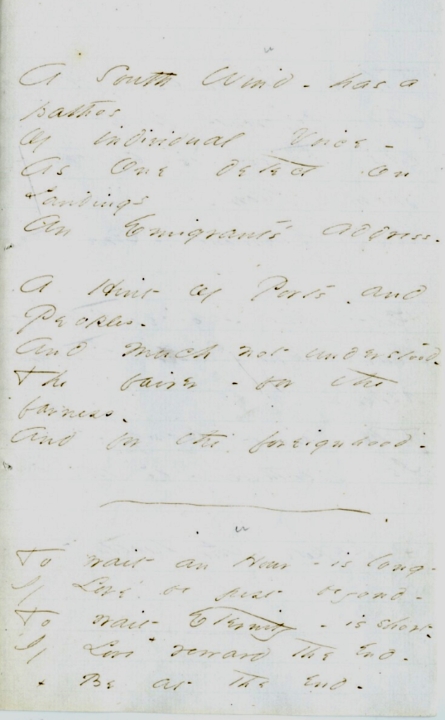 A South Wind - has a
pathos
Of individual Voice -
As One detect on
Landings
An Emigrant's address.
A Hint of Ports and
Peoples -
And much not understood
The fairer - for the
farness -
And for the foreignhood -
To wait an Hour - is long -
If Love be just beyond -
To wait Eternity - is short
If Love reward the End -
Be at the End -